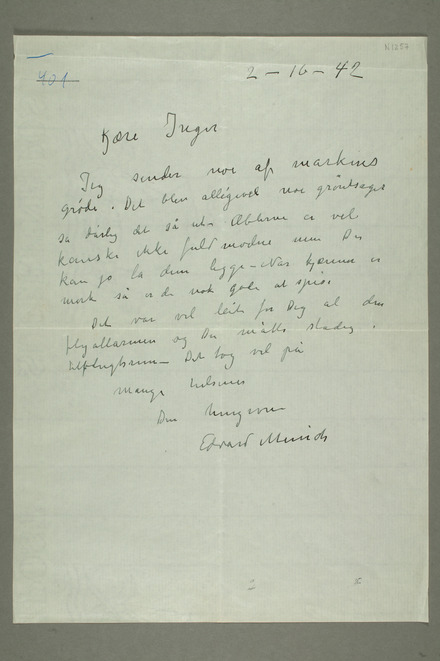 N1257
401
2-10-42
Kjære Inger
Jeg sender noe af markens
grøde. Det blev alligevel noe grøntsager
så dårlig det så ut. Æblerne er vel
kanske ikke fuldmodne men Du
kan jo la dem ligge – Når kjernen er
mørk så er de nok gode at spise
Det var vel leit for Dig al den
flyallarmen og Du måtte stadig i
tilflugtsrum – Det tog vel på
Mange hilsener
Din hengivne
Edvard Munch